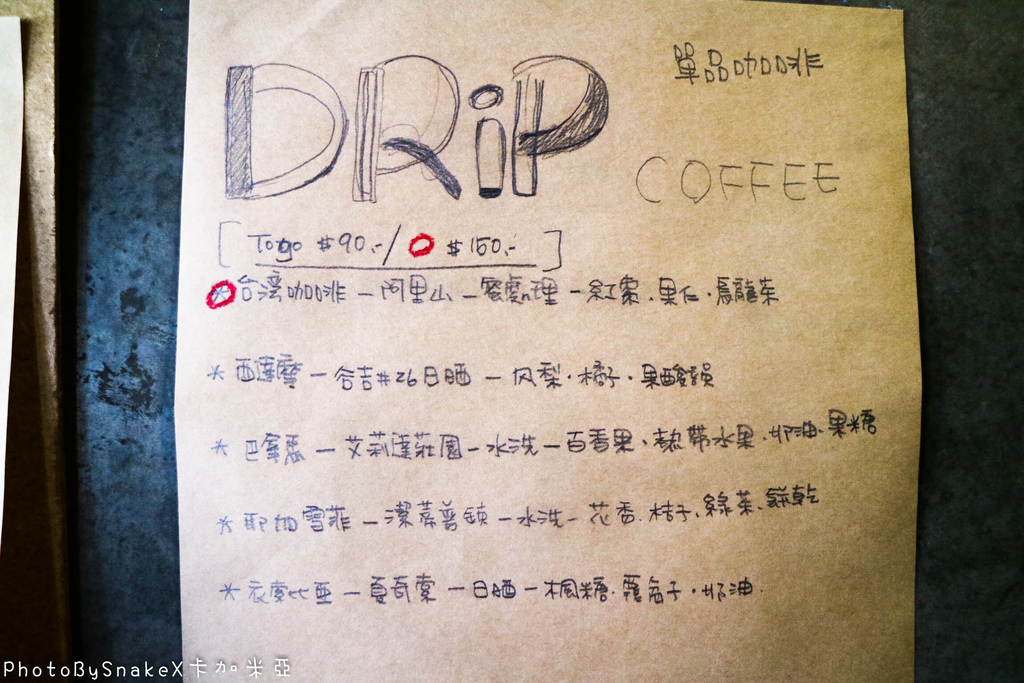 DRiP
單品咖啡
COFFEE
[ Togo $90.-/ $150.- ]
台湾咖啡 – 阿里山 – 蜜處理 – 紅棗.果仁.烏龍茶
* 西達摩 – 谷吉#26日晒 – 凤梨.橘子.果酸韻
* 巴拿馬 – 艾莉達莊園 – 水洗 – 百香果、熱帶水果.奶油.果糖
* 耶加雪菲 – 潔蒂普鎮 – 水洗 – 花香.桔子、綠茶、餅乾
* 衣索比亞 – 夏奇索 – 日晒 – 楓糖.覆盆子.奶油.
PhotoBySnakeX卡加米亞